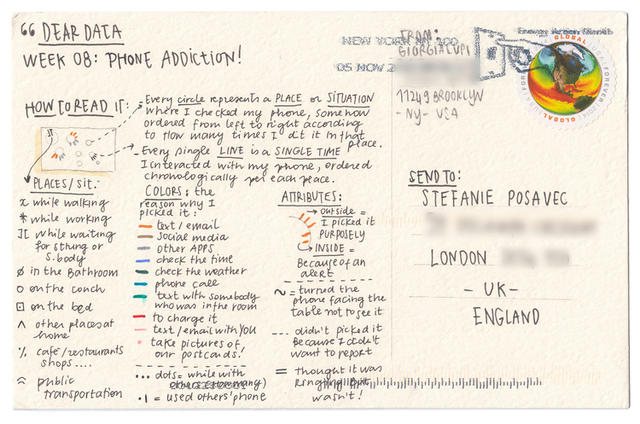 “ DEAR DATA
WEEK 08: PHONE ADDICTION!
HOW TO READ IT:
- Every circle represents a PLACE or SITUATION
where I checked my phone, somehow
ordered from left to right according
to how many times I did it in that
place.
- Every single LINE is a SINGLE TIME
I interacted with my phone, ordered
chronologically per each place.
PLACES/sit:
x while walking
* while working
while waiting
for sthing or
s.body
ø in the bathroom
o on the couch
⊡ on the bed
^ other places at
home
% cafè/restaurants
shops....
public
transportation
COLORS: the
reason why I
picked it:
text/email
social media
other APPS
check the time
check the weather
phone call
text with somebody
who was in the room
to charge it
text/email with YOU
take pictures of
our postcards!
... dots = while with
others
·| = used others' phone
ATTRIBUTES:
→ outside =
I picked it
PURPOSELY
→ INSIDE =
Because of an
alert
~ = turned the
phone facing the
table not to see it
--- didn't picked it
Because I didn't
want to report
= thought it was
ringing but
wasn't!
NEW YORK NY 100
05 NOV 2
FROM:
GIORGIA LUPI
11249 BROOKLYN
- NY - USA
GLOBAL
FOREVER
GLOBAL
SEND TO:
STEFANIE POSAVEC
LONDON
- UK -
ENGLAND